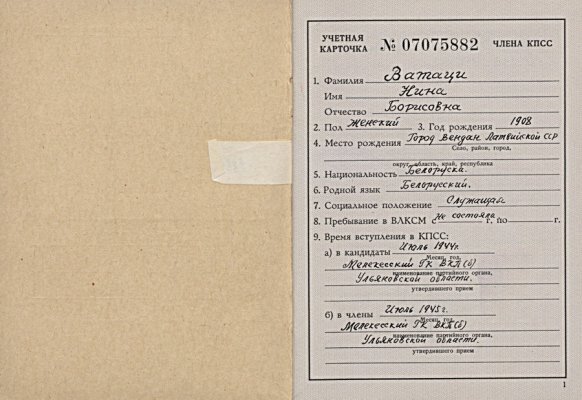 УЧЕТНАЯ КАРТОЧКА № 07075882 ЧЛЕНА КПСС
1. Фамилия Ватаци
Имя Нина
Отчество Борисовна
2. Пол Женский 3. Год рождения 1908
4. Место рождения Город Вендан Латвийской ССР
Село, район, город,
округ, область, край, республика
5. Национальность Белоруска.
6. Родной язык Белорусский.
7. Социальное положение Служащая
8. Пребывание в ВЛКСМ с Не состояла г. по г.
9. Время вступления в КПСС:
а) в кандидаты Июль 1944г.
Месяц, год,
Мелекесский ГК ВКП(б)
наименование партийного органа,
Ульяновской области.
утвердившего прием
б) в члены Июль 1945г.
Месяц, год,
Мелекесский ГК ВКП(б)
наименование партийного органа,
Ульяновской области.
утвердившего прием
1